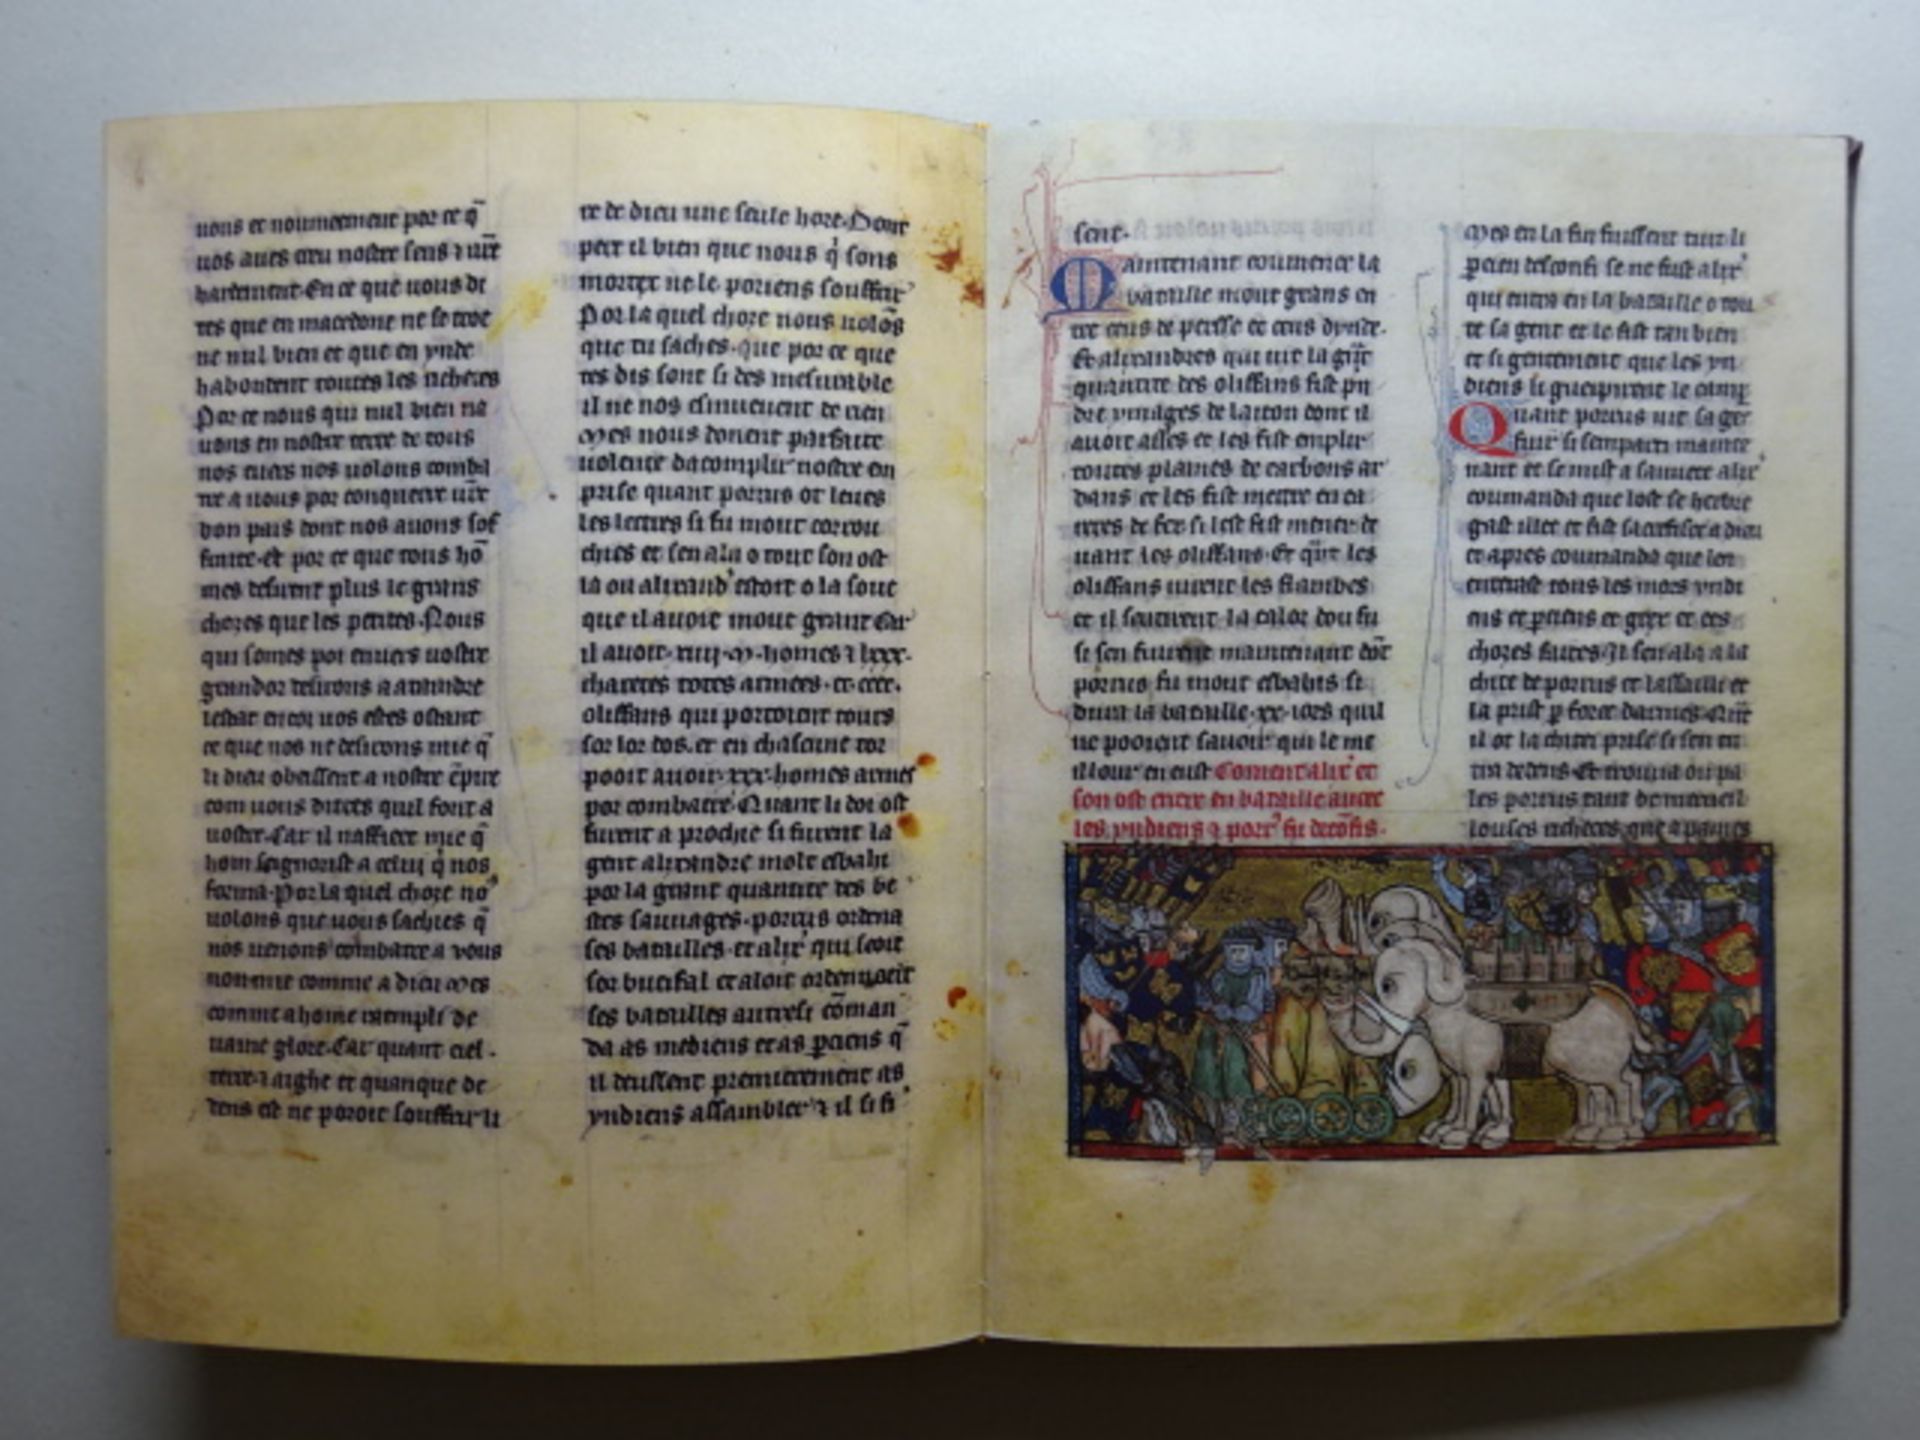 uons et noumeement por ce q̄
uos aues creu nostre sens ⁊ ur̄e
hardement. En ce que uous di
tes que en macedone ne se troe
ne nul bien et que en ynde
habondent toutes les richeces
Por ce nous qui nul bien na
uons en nostre terre de tous
nos cuers nos uolons comba
tre a uous por conquerre ur̄e
bon pais dont nos auons sof
fraite. et por ce que tous hō
mes desirent plus le grans
choses que les petites. Nous
qui somes poi enuers uostre
grandor desirons a ataindre
lestat en coi uos estes ostant
ce que nos ne desirons mie q̄
li dieu obeissent a nostre ēpire
com uous dittes quil font a
uostre. Car il naffiert mie q̄
hom seignorist a celui q̓ nos
forma. Por la quel chose no᾿
uolons que uous saches q̄
nos uenons combatre a vous
non mie comme a dieu mes
comme a home raempli de
uaine glore. Car quant ciel.
terre. ⁊ aighe et quanque de
dens est ne poroit souffrir li
re de dieu une seule hore. Dont
pert il bien que nous q̓ sons
mortex ne le poriens souffrir
Por la quel chose nous uolōs
que tu saches. que por ce que
tes dis sont si des mesurable
il ne nos esmueuent de rien
Mes nous donent parfaite
uolente dacomplir nostre en
prise quant porrus ot leues
les lettres si fu mout corrou
chies et sen ala o tout son ost
la ou alixand᾿ estoit o la soue
que il auoit mout grant Car
il auoit. xiiij. m. homes ⁊ lxxx.
charetes totes armees. et. cccc.
oliffans qui portoient tours
sor lor dos. et en chascune tor
pooit auoir. xxx. homes armes
por combatre. Quant li doi ost
furent a prochie si furent la
gent alixandre molt esbahi
por la grant quantite des be
stes sauuages. porrus ordena
ses batailles. et alix᾿ qui seoit
sor bucifal et aloit ordenoeit
ses batailles autresi cōman
da as mediens et as perciens q̄
il deussent premierement as
yndiens assambler ⁊ il si fi
sent.
Maintenant coumence la
bataille mout grans en
tre ceus de persse et ceus dynde.
Et alixandres qui uit la gn̄t
quantite des oliffans fist pn
dre ymages de laiton dont il
auoit asses et les fist emplir
toutes plaines de carbons ar
dans et les fist mettre en ca
reres de fer. si lest fist mener de
uant les oliffans. Et qn̄t les
oliffans uirent les flambes
et il sentirent la calor dou fu
si sen fuirent maintenant dōt
porrus fu mout esbahis si
dura la bataille. xx. iors quil
ne pooient sauoir qui le me
illour en eust Coment alix᾿ et
son ost entre en bataille aueee
les yndiens ⁊ porr᾿ fu descōfis.
Mes en la fin fuissent tuit li
percien desconfi se ne fust alix᾿
qui entra en la bataille o tou
te sa gent et le fist tan bien
et si gentement que les yn
diens li guerpirent le camp
Quant porrus uit sa gēt
fuir si sen parti mainte
nant et se mist a sauuete alix᾿
coumanda que lost se herber
gast illec et fist sacrefisce a dieu
et apres coumanda que len
enterast tous les mors yndi
ens et perciens et grex et ces
choses faites. Il sen ala a la
chite de porrus et lassailli et
la prist p force darmes. Qn̄t
il ot la chite prise si sen en
tra dedens. Et trouua ou pa
les porrus tant de merueil
louses richeces que a paines